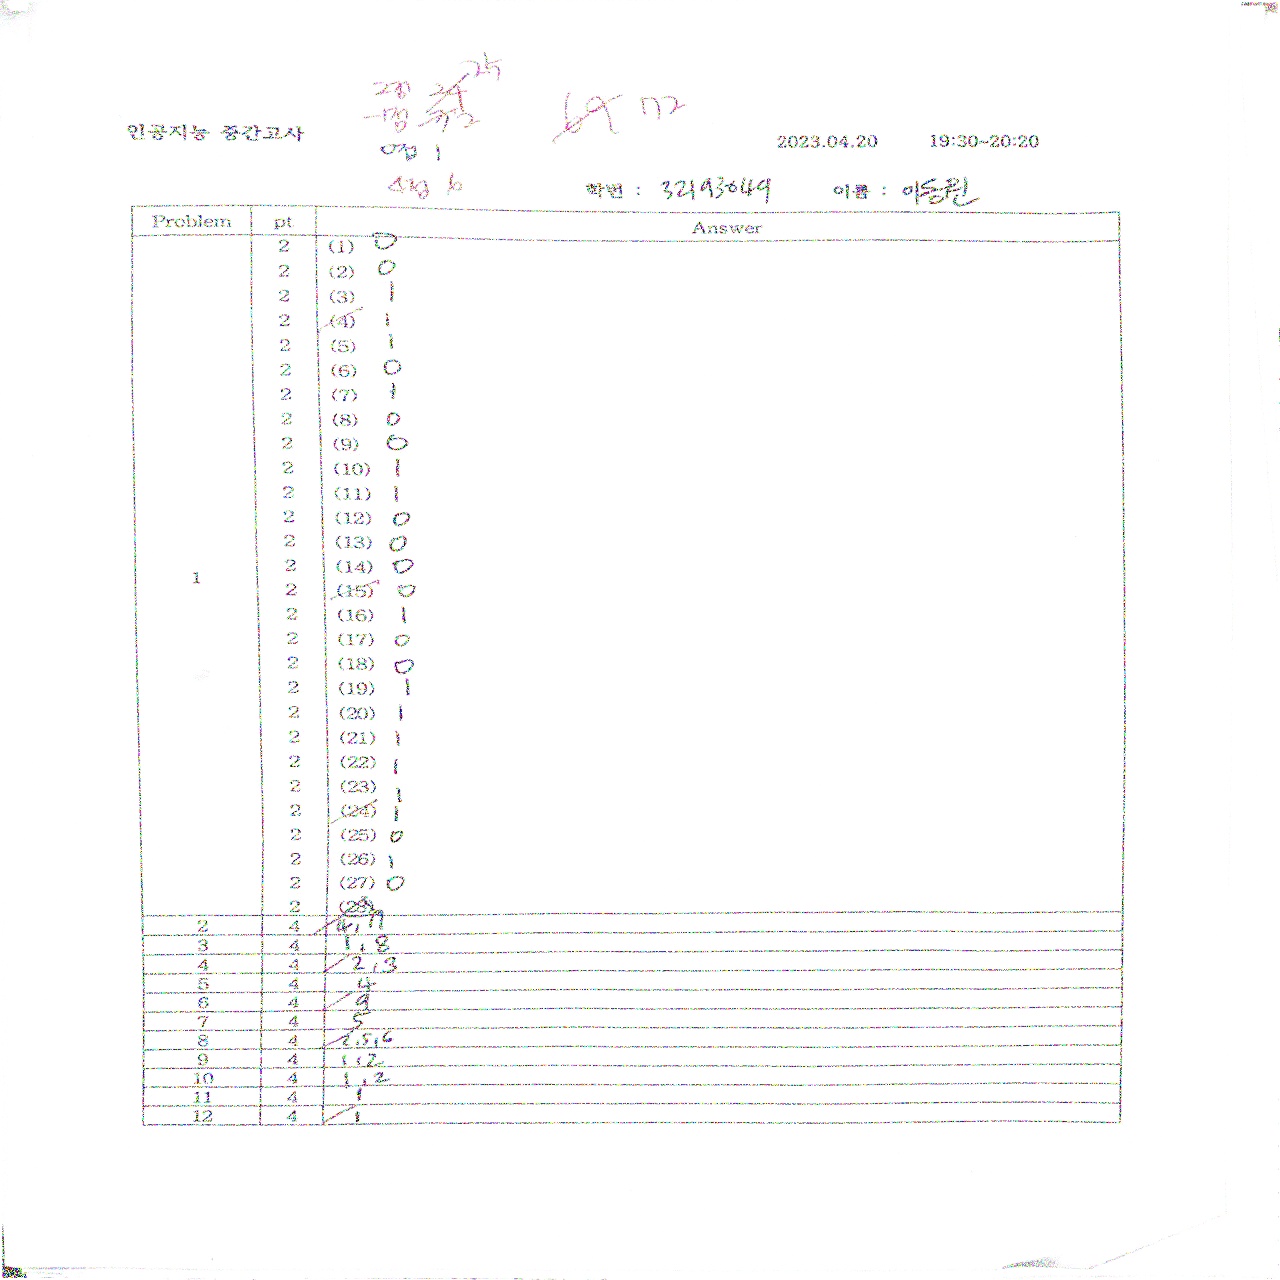 25
2점 24
69 72
인공지능 중간고사
2023.04.20 19:30~20:20
0점 1
4점 6
학번 : 32193049 이름 : 이동원
Problem pt Answer
2 (1) 0
2 (2) 0
2 (3) 1
2 (4) 1
2 (5) 1
2 (6) 0
2 (7) 1
2 (8) 0
2 (9) 0
2 (10) 1
2 (11) 1
2 (12) 0
2 (13) 0
2 (14) 0
1
2 (15) 0
2 (16) 1
2 (17) 0
2 (18) 0
2 (19) 1
2 (20) 1
2 (21) 1
2 (22) 1
2 (23) 1
2 (24) 1
2 (25) 0
2 (26) 1
2 (27) 0
2 (28)
2 4 4, 7
3 4 1, 8
4 4 2, 3
5 4 4
6 4 9
7 4 5
8 4 2,5,6
9 4 1,2
10 4 1,2
11 4 1
12 4 1